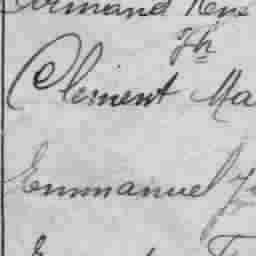 Armand René
Jh
Clement Ma
Emmanuel J